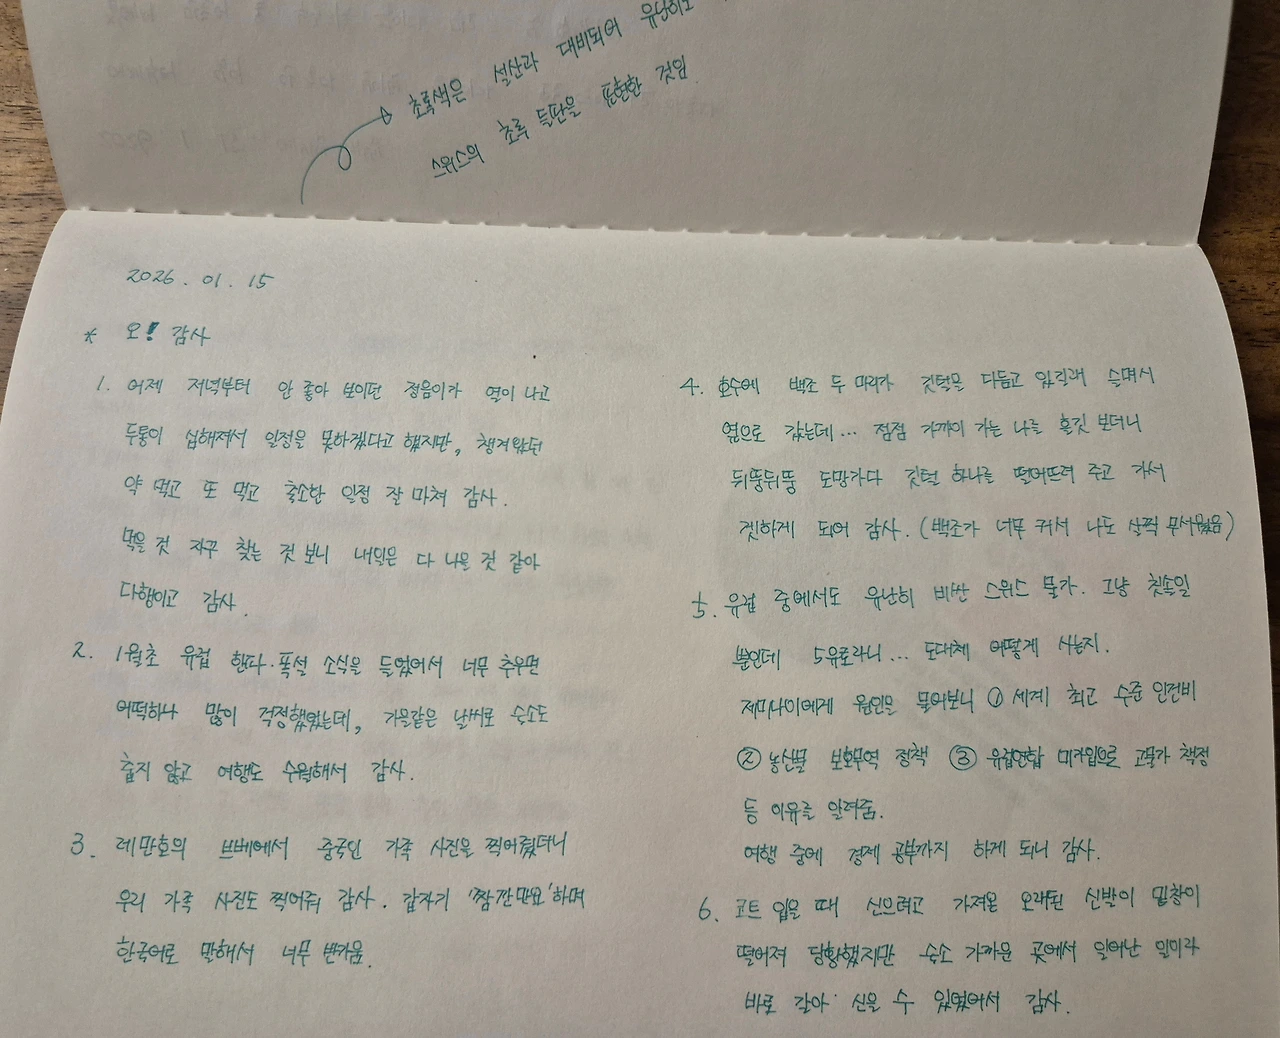 초록색은 설산과 대비되어 유난히도
스위스의 초록 들판을 표현한 것임.
2026. 01. 15
* 오! 감사
1. 어제 저녁부터 안 좋아 보이던 정음이가 열이 나고
두통이 심해져서 일정을 못하겠다고 했지만, 챙겨왔던
약 먹고 또 먹고 축소한 일정 잘 마쳐 감사.
먹을 것 자꾸 찾는 것 보니 내일은 다 나을 것 같아
다행이고 감사.
2. 1월초 유럽 한파·폭설 소식을 들었어서 너무 추우면
어떡하나 많이 걱정했었는데, 가을같은 날씨로 숙소도
춥지 않고 여행도 수월해서 감사.
3. 레만호의 브베에서 중국인 가족 사진을 찍어줬더니
우리 가족 사진도 찍어줘 감사. 갑자기 '짬깐만요'하며
한국어로 말해서 너무 반가움.
4. 호수에 백조 두 마리가 깃털을 다듬고 있길래 슬며시
옆으로 갔는데... 점점 가까이 가는 나를 흘깃 보더니
뒤뚱뒤뚱 도망가다 깃털 하나를 떨어뜨려 주고 가서
겟하게 되어 감사. (백조가 너무 커서 나도 살짝 무서웠음)
5. 유럽 중에서도 유난히 비싼 스위스 물가. 그냥 칫솔일
뿐인데 5유로라니... 도대체 어떻게 사는지.
제미나이에게 원인을 물어보니 ① 세계 최고 수준 인건비
② 농산물 보호무역 정책 ③ 유럽연합 미가입으로 고물가 책정
등 이유를 알려줌.
여행 중에 경제 공부까지 하게 되니 감사.
6. 코트 입을 때 신으려고 가져온 오래된 신발이 밑창이
떨어져 당황했지만 숙소 가까운 곳에서 일어난 일이라
바로 갈아 신을 수 있었어서 감사.